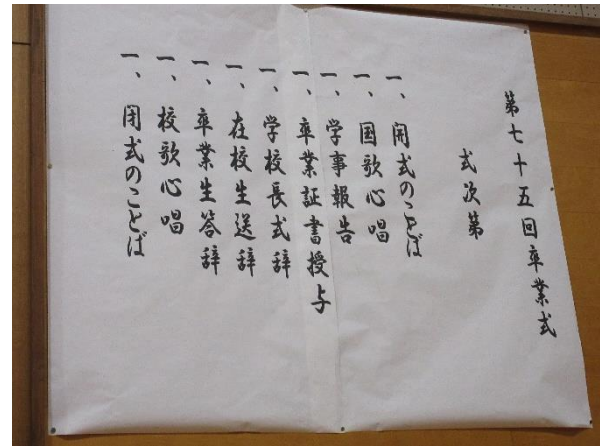 第七十五回卒業式
式次第
一、開式のことば
一、国歌心唱
一、学事報告
一、卒業証書授与
一、学校長式辞
一、在校生送辞
一、卒業生答辞
一、校歌心唱
一、閉式のことば